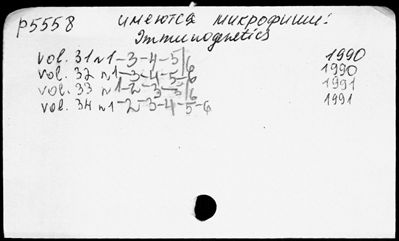 P5558 имеются микрофиши:
Immunogenetics
vol. 31 n 1-3-4-5/6 1990
vol. 32 n 1-3-4-5-6 1990
vol. 33 n 1-2-3-5/6 1991
vol. 34 n 1-2-3-4-5-6 1991